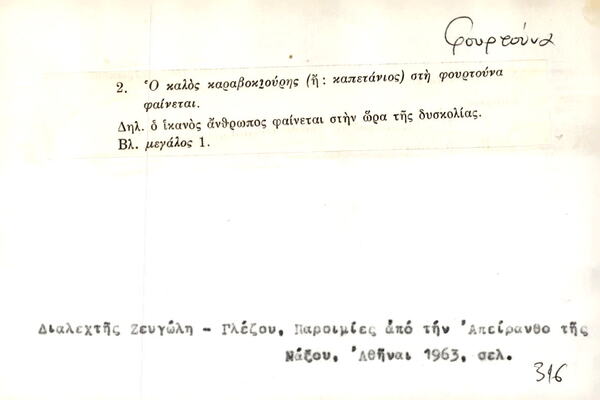 φουρτούνα
2. Ὁ καλὸς καραβοκιούρης (ἤ : καπετάνιος) στὴ φουρτούνα
φαίνεται.
Δηλ. ὁ ἱκανὸς ἄνθρωπος φαίνεται στὴν ὥρα τῆς δυσκολίας.
Βλ. μεγάλος 1.
Διαλεχτῆς Ζευγώλη - Γλέζου, Παροιμίες ἀπό τήν Ἀπείρανθο τῆς
Νάξου, Ἀθῆναι 1963, σελ.
316